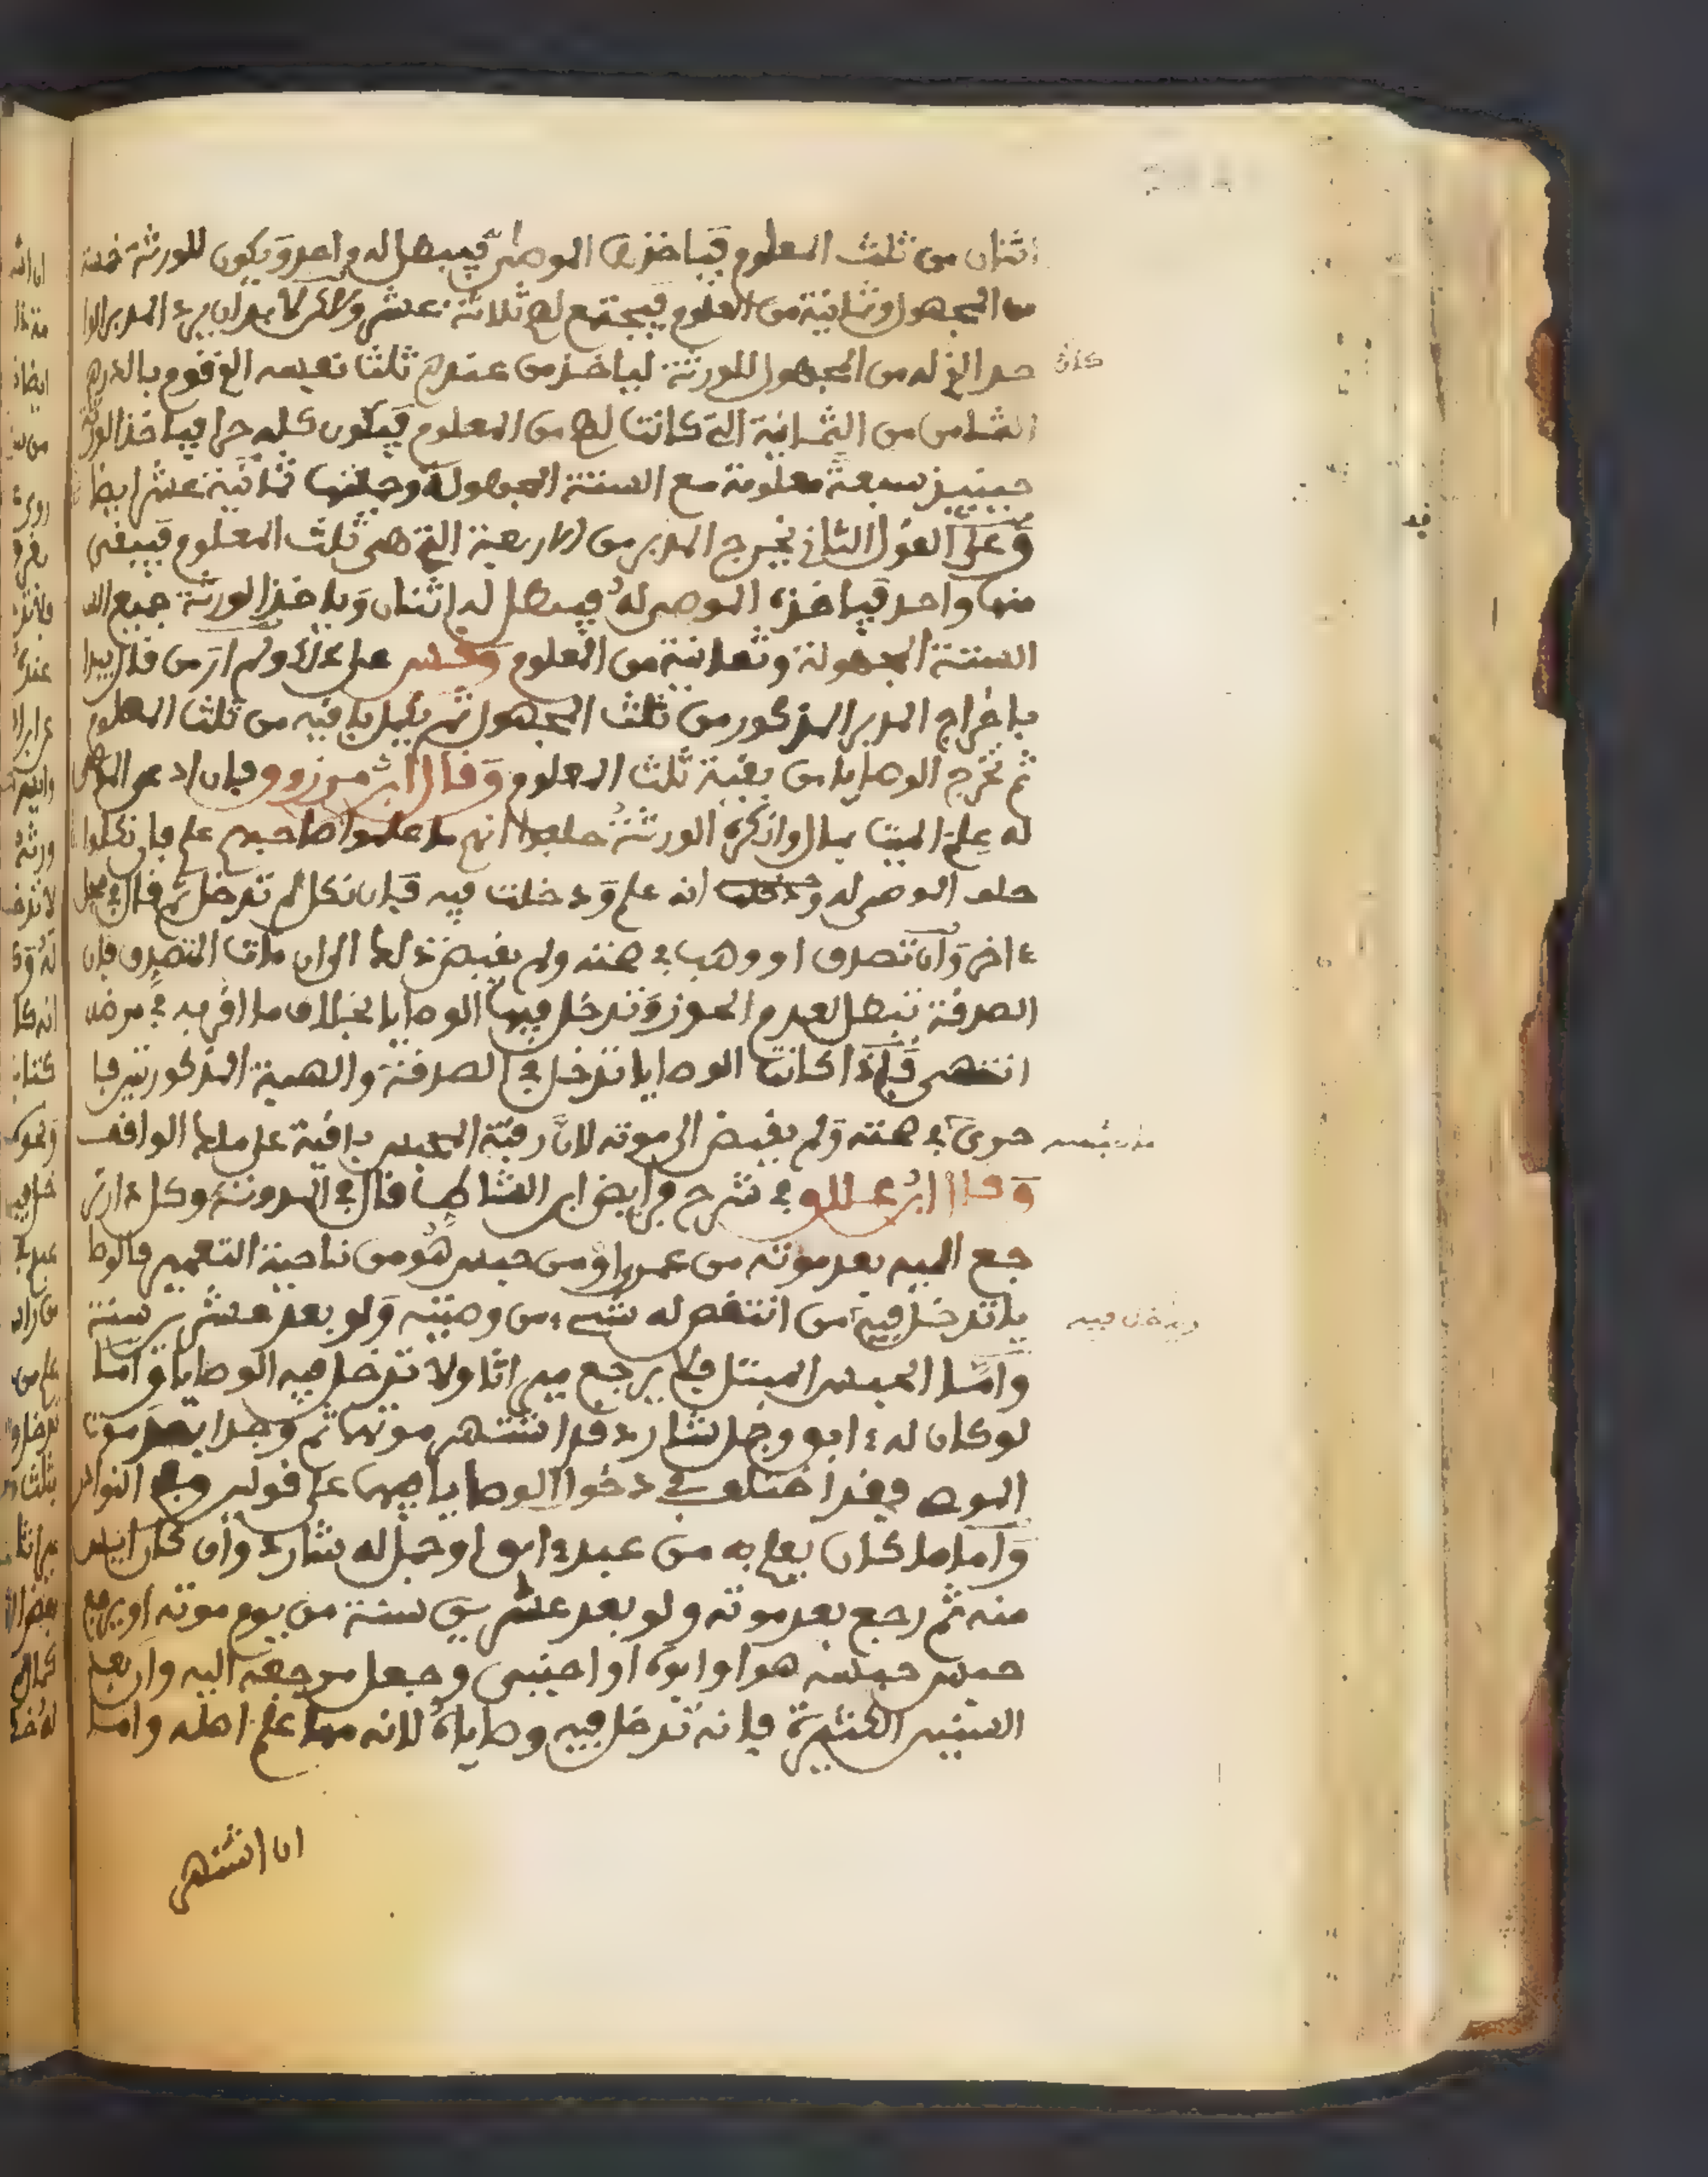 اثنان من ثلث المعلوم فياخذها الموصى فيبطل له واحد ويكون للورثة خمسة
من المجهول وثمانية من المعلوم فيجتمع لهم ثلاثة عشر ولاكن لا بد ان يرد المدبر الوا
حد الذي له من المجهول للورثة لياخذ من عندهم ثلثا نفسه الذي قوم بالدرهم
كان
الثامن من الثمانية التي كانت لهم من المعلوم فيكون كله حرا فياخذ الورثة
حينيذ سبعة معلومة مع الستة المجهولة وجملتها ثلاثة عشر ايضا
وعلى القول الثاني يخرج المدبر من الاربعة التي هي ثلث المعلوم فيبقى
منها واحد فياخذه الموصى له فيبطل له اثنان وياخذ الورثة جميع
الستة المجهولة وثمانية من المعلوم وقس على ذلك ولم ار من قال يبدا
باخراج المدبر المذكور من ثلث المجهول ثم يكمل باقيه من ثلث المعلوم
ثم تخرج الوصايا من بقية ثلث المعلوم وقال ابن مرزوق فان ادعى الموصى
له علم الميت بمال وانكره الورثة حلفوا انهم ما علموا صاحبهم علم فان نكلوا
حلف الموصى له انه علم ودخلت فيه فان نكل لم تدخل ثم قال في محل
ءاخر وان تصدق او وهب في صحته ولم يقبض ذلك الى ان مات المتصدق فان
الصدقة تبطل لعدم الحوز وتدخل فيها الوصايا بخلاف ما اقر به في مرضه
انتهى فاذا كانت الوصايا تدخل في الصدقة والهبة المذكورتين فا
حرى في صحته ولم يقبض الى موته لان رقبة المحبس باقية على ملك الواقف
وقال ابن عللو في شرح فرايض ابن الشاط قال في المدونة وكل دار تر
جع اليه بعد موته من عمرى او من حبس هو من ناحية التعمير فالوصا
يا تدخل فيه من انتقص له شيء من وصيته ولو بعد عشرين سنة
ويدخل فيه
واما الحبس المبتل فلا يرجع ميراثا ولا تدخل فيه الوصايا واما
لو كان له ءابق وجمل شارد قد اشتهر موتهما ثم وجدا بعد موت
الموصي فقد اختلف في دخول الوصايا فيهما على قولين وفي النوادر
واما ما كان يعلم به من عبد ءابق او جمل له شارد وان كان ايس
منه ثم رجع بعد موته ولو بعد عشرين سنة من يوم موته او يرجع
حبس حبسه هو او ابوه او اجنبي وجعل مرجعه اليه واربعد
السنين الكثيرة فانه تدخل فيه وصاياه لانه مما علم اهله واما
ان اشتهى
قد